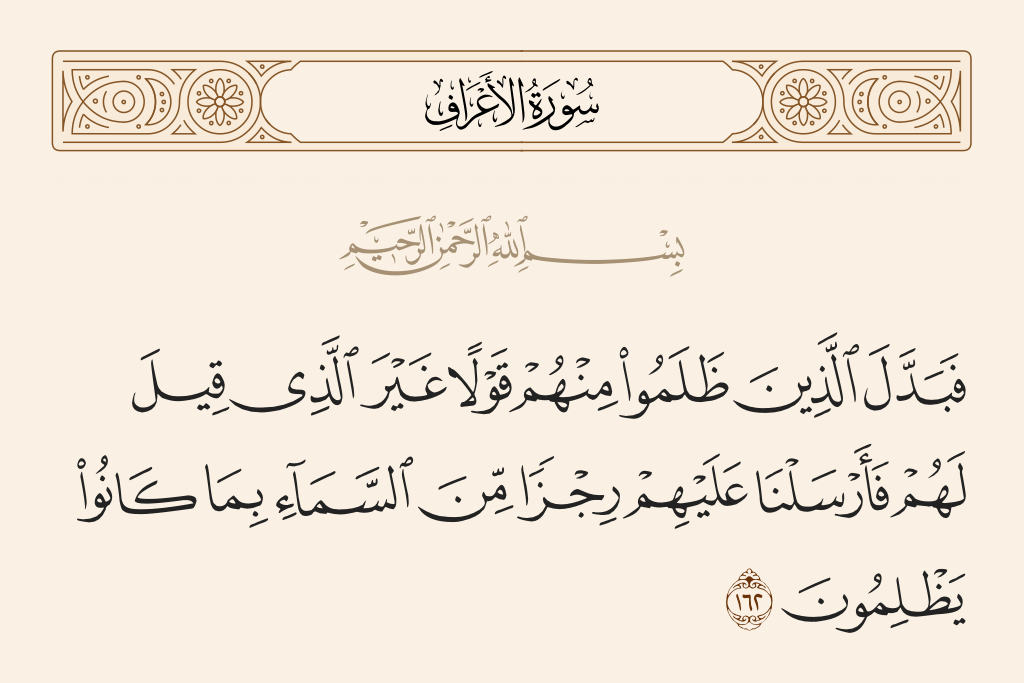 سُورَةُ الأَعْرَافِ
بِسْمِ ٱللَّهِ ٱلرَّحْمَٰنِ ٱلرَّحِيمِ
فَبَدَّلَ ٱلَّذِينَ ظَلَمُوا۟ مِنْهُمْ قَوْلًا غَيْرَ ٱلَّذِى قِيلَ
لَهُمْ فَأَرْسَلْنَا عَلَيْهِمْ رِجْزًا مِّنَ ٱلسَّمَآءِ بِمَا كَانُوا۟
يَظْلِمُونَ ١٦٢